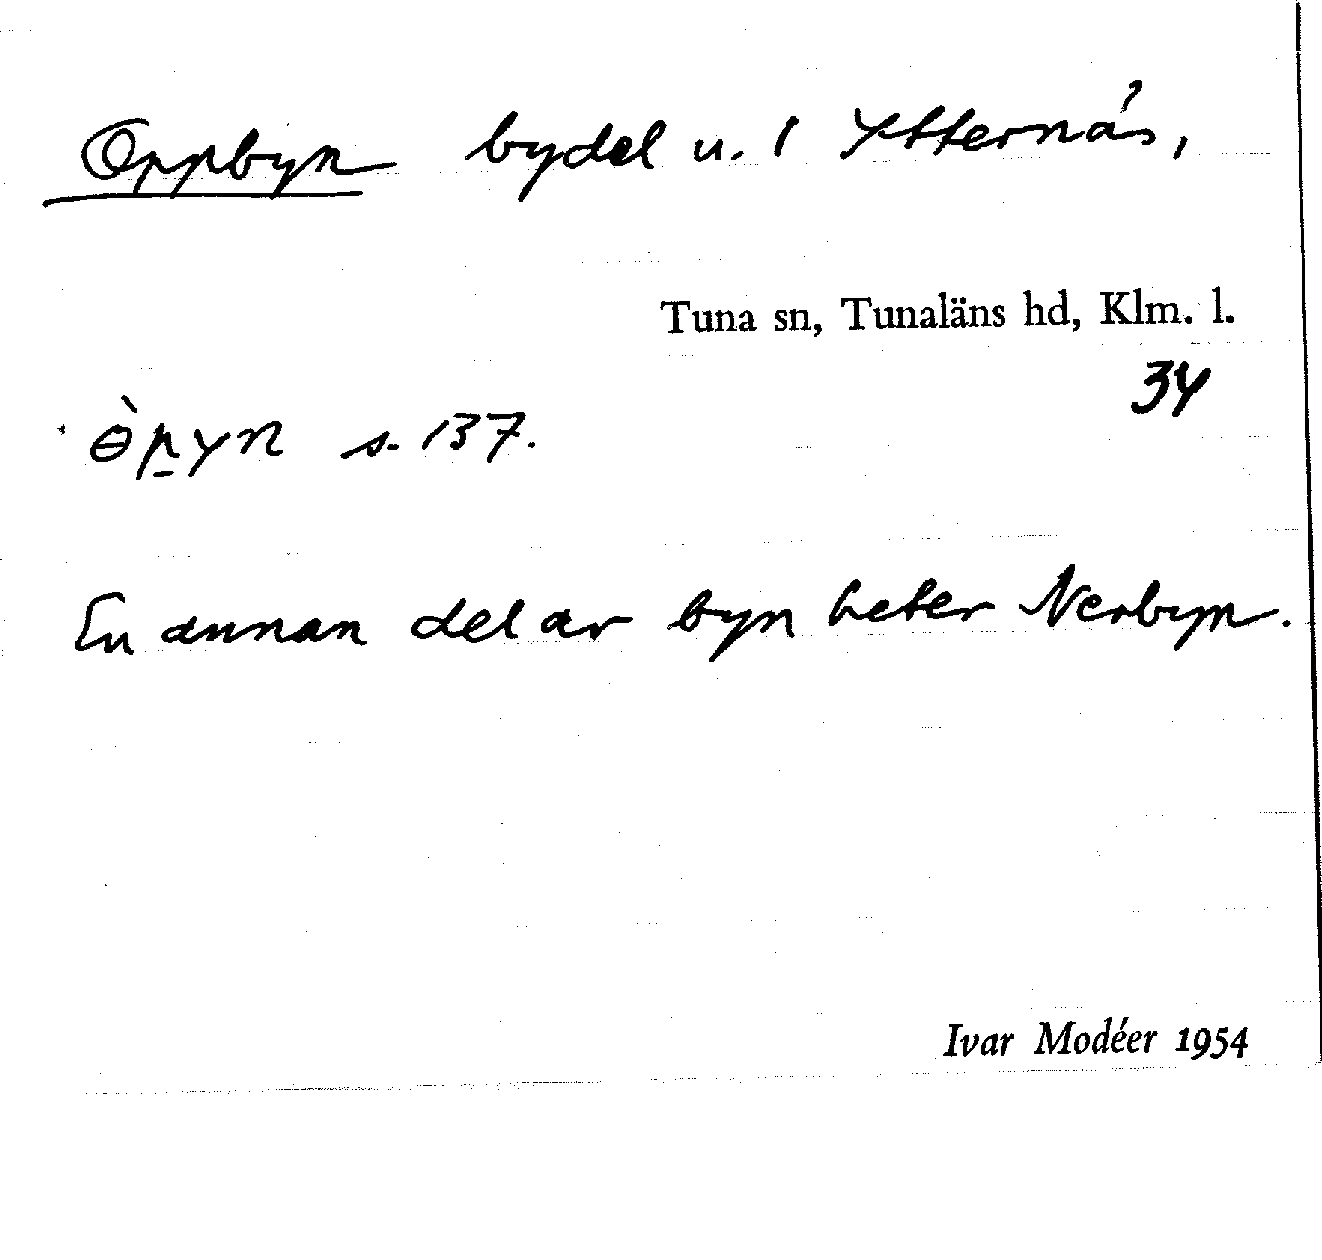 Oppbyn bydel u. 1 Ytternäs,
Tuna sn, Tunaläns hd, Klm. l.
34
ɵ̀p̠yn s. 137.
En annan del av byn heter Nerbyn.
Ivar Modéer 1954